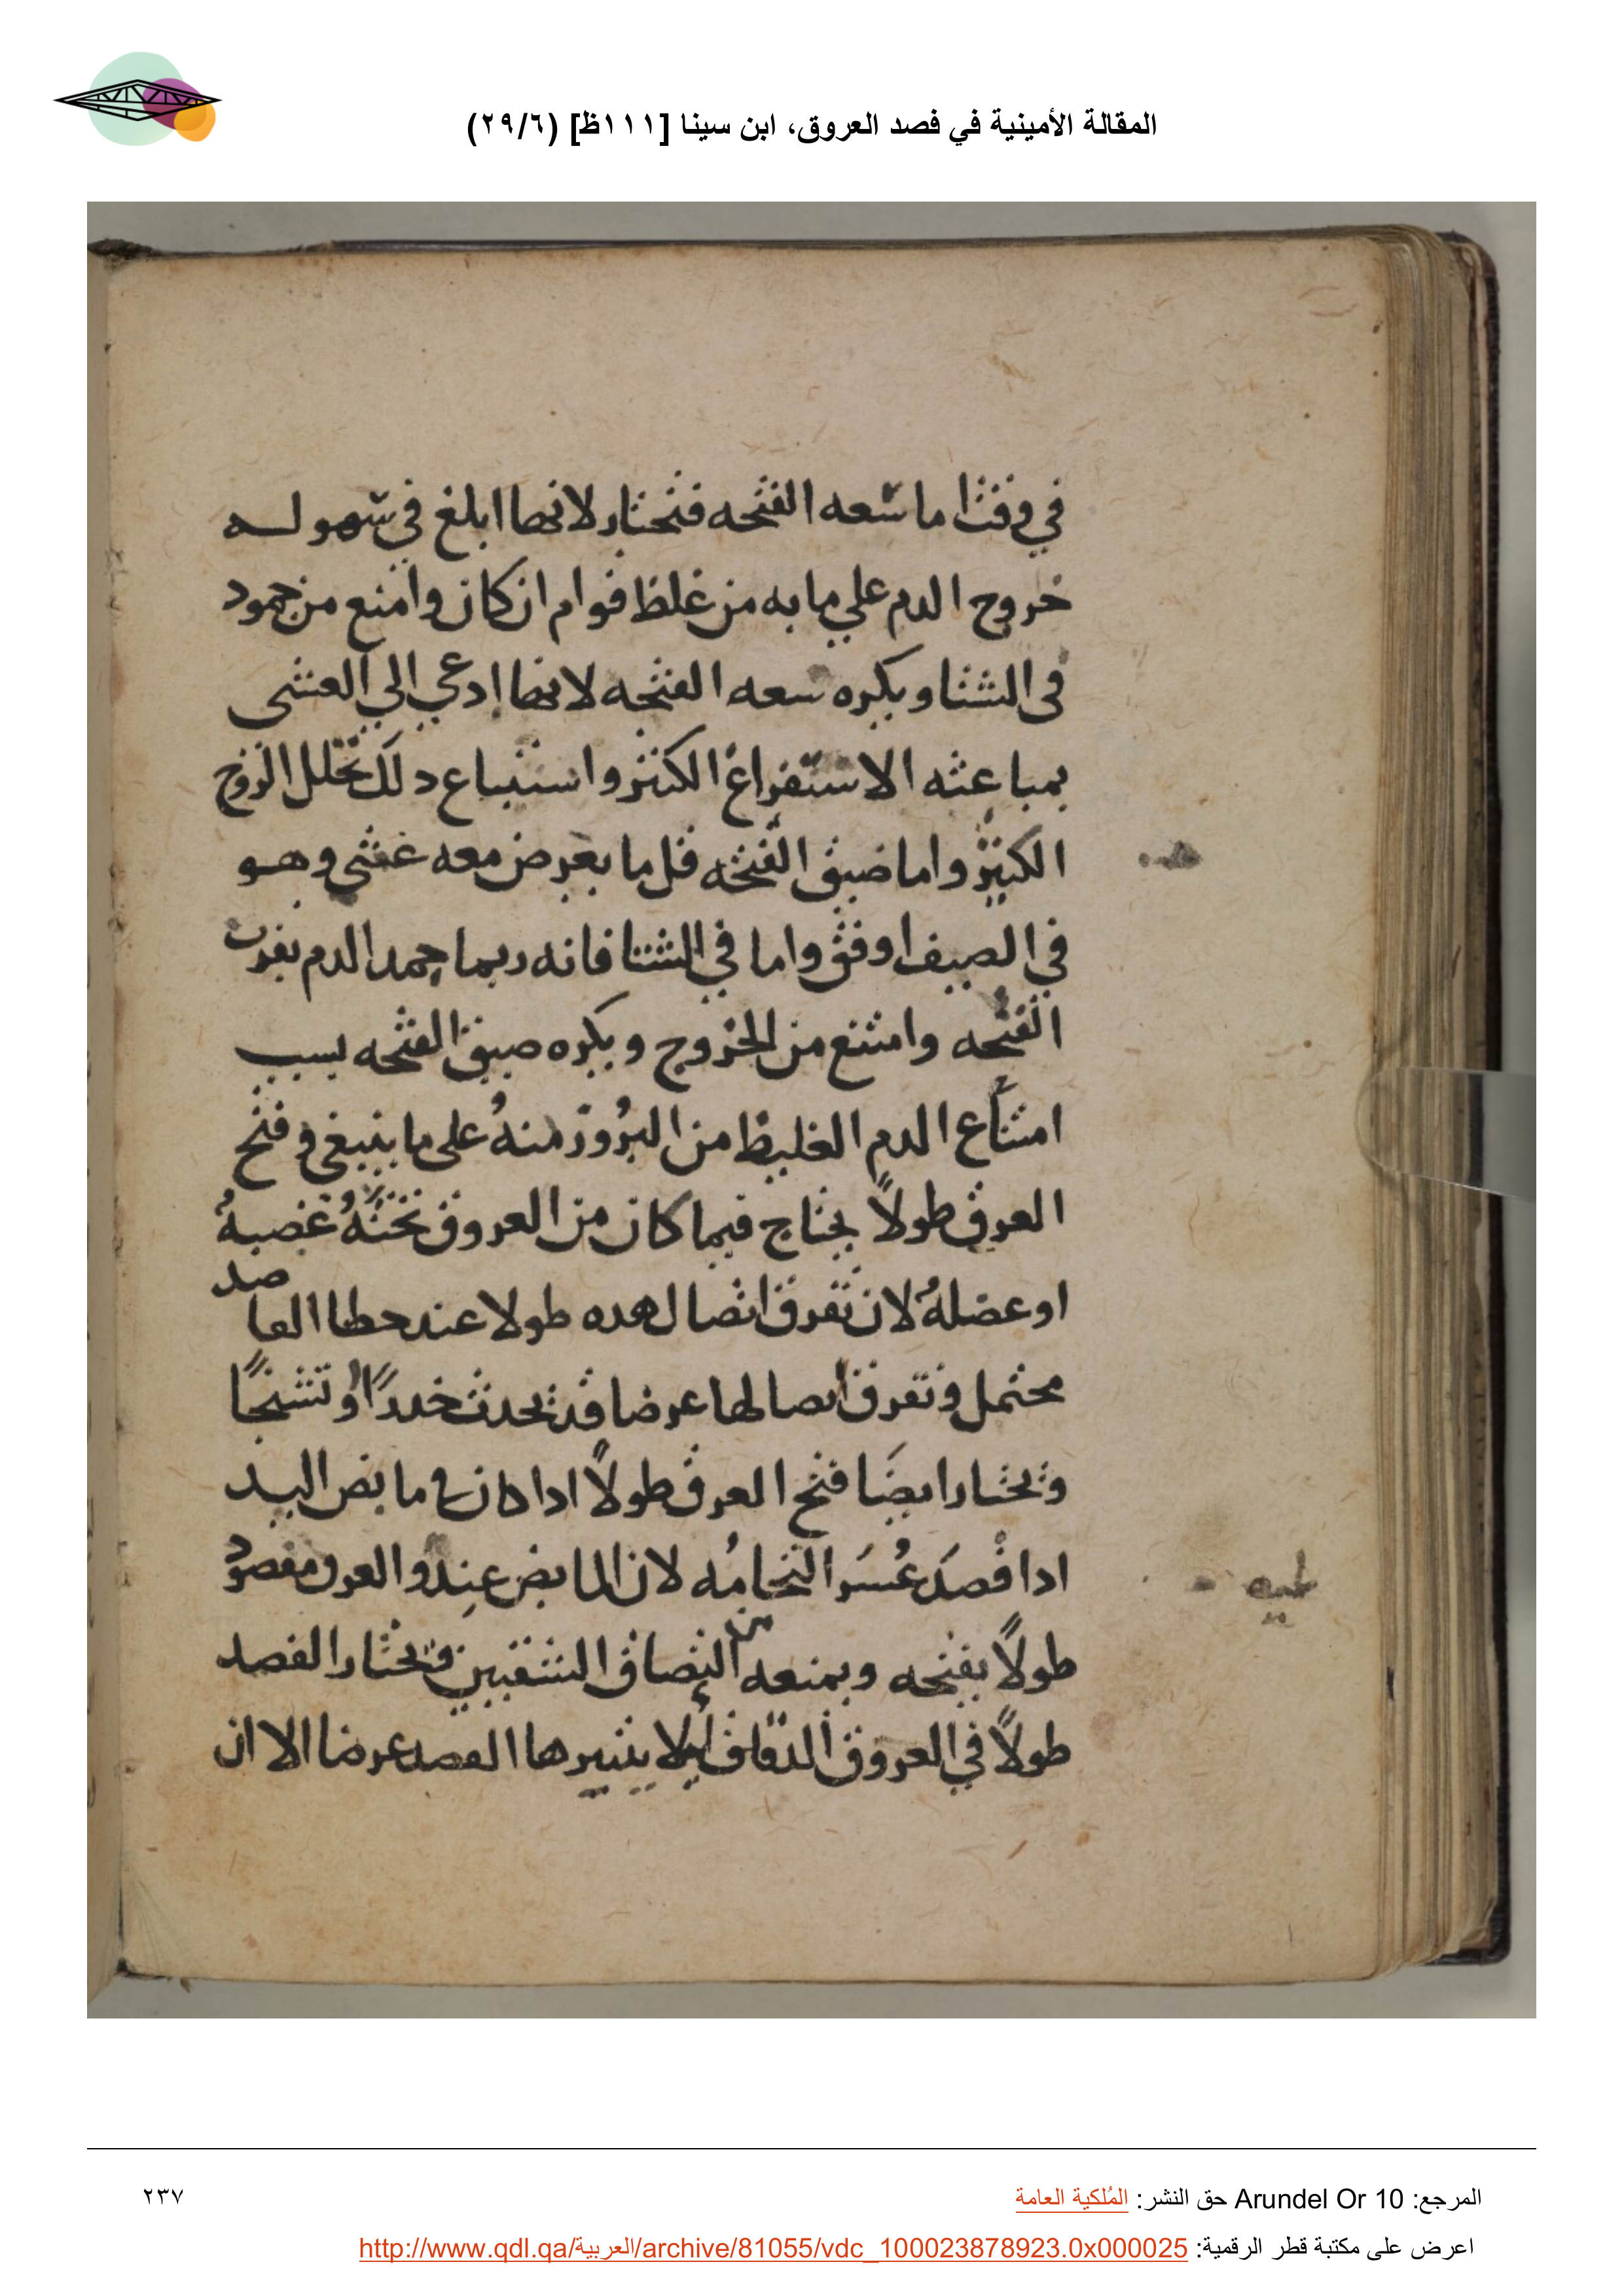 المقالة الأمينية في فصد العروق، ابن سينا [١١١ظ] (٢٩/٦)
في وقت اما سعه الفتحه فتختار لانها ابلغ في سهوله
خروج الدم علي ما به من غلظ قوام ان كان وامنع من جمود
في الشتا ويكره سعه الفتحه لانها ادعي الي الغشي
بمباعثه الاستفراغ الكثير واستتباع دلك تحلل الروح
الكثير واما ضيق الفتحه قل ما يعرض معه غشي وهو
في الصيف اوفق واما في الشتا فانه ربما جمد الدم بقرب
الفتحه وامتنع من الخروج ويكره ضيق الفتحه بسبب
امتناع الدم الغليظ من البُروز منهُ علي ما ينبغي وفتح
العرق طولاً يحتاج فيما كان من العروق تحتهُ عصبهُ
او عضلهُ لان تفرق اتصال هده طولا عند خطا الفاصد
محتمل وتفرق اتصالها عرضا قد يحدث خدرًا او تشنجًا
وتختار ايضَا فتح العرق طولاً ادا كان في مابض اليد
ادا فصدَ عُسَر التحامُه لان المابض عند والعرق مفصود
طولاً يفتحه ويمنعه من التصاق الشقين وتختار الفصد
طولاً في العروق الدقاق ليلا يتبترها الفصد عرضا الا ان
المرجع: Arundel Or 10 حق النشر: المُلكية العامة
٢٣٧
اعرض على مكتبة قطر الرقمية: http://www.qdl.qa/العربية/archive/81055/vdc_100023878923.0x000025